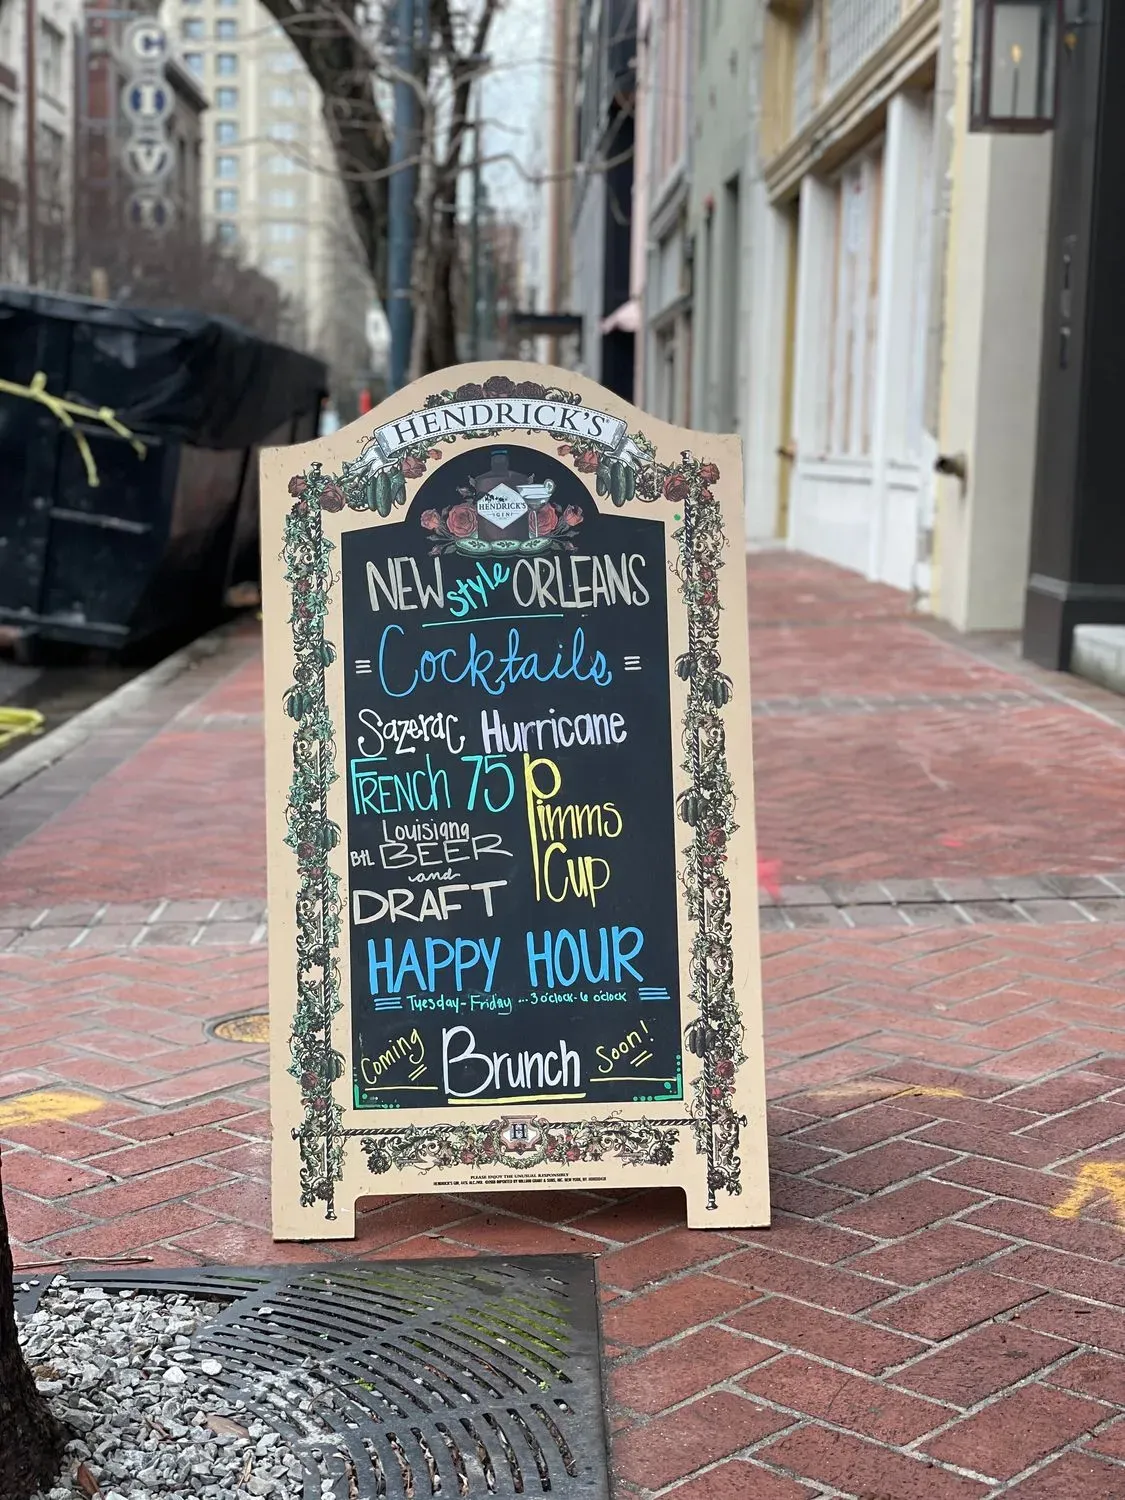 CIVI
HENDRICK'S
HENDRICK'S
GIN
NEW style ORLEANS
Cocktails
Sazerac Hurricane
FRENCh 75
Pimms
Cup
Louisiana
BtL BEER
and
DRAFT
HAPPY HOUR
Tuesday - Friday ... 3 o'clock - 6 o'clock
Coming Brunch Soon!
H
PLEASE ENJOY THE UNUSUAL RESPONSIBLY